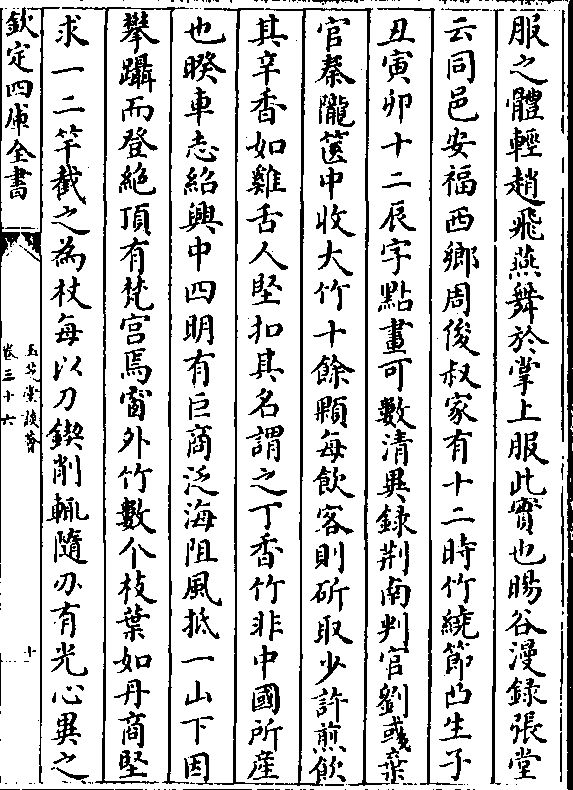 服之體輕趙飛燕舞於掌上服此實也暘谷漫錄張堂
云同邑安福西鄉周俊叔家有十二時竹繞節凸生子
丑寅卯十二辰字點畫可數清異錄荆南判官劉彧棄
官秦隴篋中收大竹十餘顆每飲客則斫取少許煎飲
其辛香如雞舌人堅扣其名謂之丁香竹非中國所産
也暌車志紹興中四明有巨商泛海阻風抵一山下因
攀躡而登絶頂有梵宫焉窗外竹數个枝葉如丹商堅
求一二竿截之為杖每以刀鍥削輒隨刃有光心異之
欽定四庫全書
玉芝堂談薈
卷三十六
十